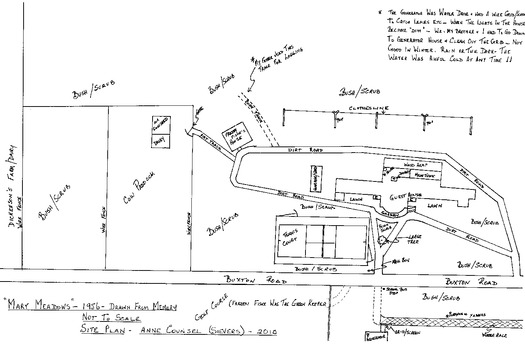 * THE GENERATOR WAS WATER DRIVEN + HAD A WIRE GRID/SCREEN
TO CATCH LEAVES ETC - WHEN THE LIGHTS IN THE HOUSE
BECAME "DIM" - WE - MY BROTHER + I HAD TO GO DOWN
TO GENERATOR HOUSE + CLEAN OUT THE GRID - NOT
GOOD IN WINTER. RAIN OR THE DARK. THE
WATER WAS AWFUL COLD AT ANY TIME !!
BUSH/SCRUB
BUSH/SCRUB
BUSH/SCRUB
CLOTHESLINE
DICKERSON'S FARM/DAIRY
WIRE FENCE
BUSH/SCRUB
WIRE FENCE
COW PADDOCK
DAIRY
WIRE FENCE
DIRT TRACK
HOUSE
DIRT ROAD
WOOD HEAP
GUEST HOUSE
LAWN
LAWN
DIRT ROAD
DIRT ROAD
DIRT ROAD
BUSH/SCRUB
BUSH/SCRUB
TENNIS
COURT
LARGE
TREE
MAIL BOX
BUSH/SCRUB
BUSH/SCRUB
BUXTON ROAD
BUXTON ROAD
"MARY MEADOWS" - 1956 - DRAWN FROM MEMORY
NOT TO SCALE
SITE PLAN - ANNE COUNSEL (SIEVERS) - 2010
GOLF COURSE
(FATHER FISHER WAS THE GREEN KEEPER)
BUSH/SCRUB
WATER RACE